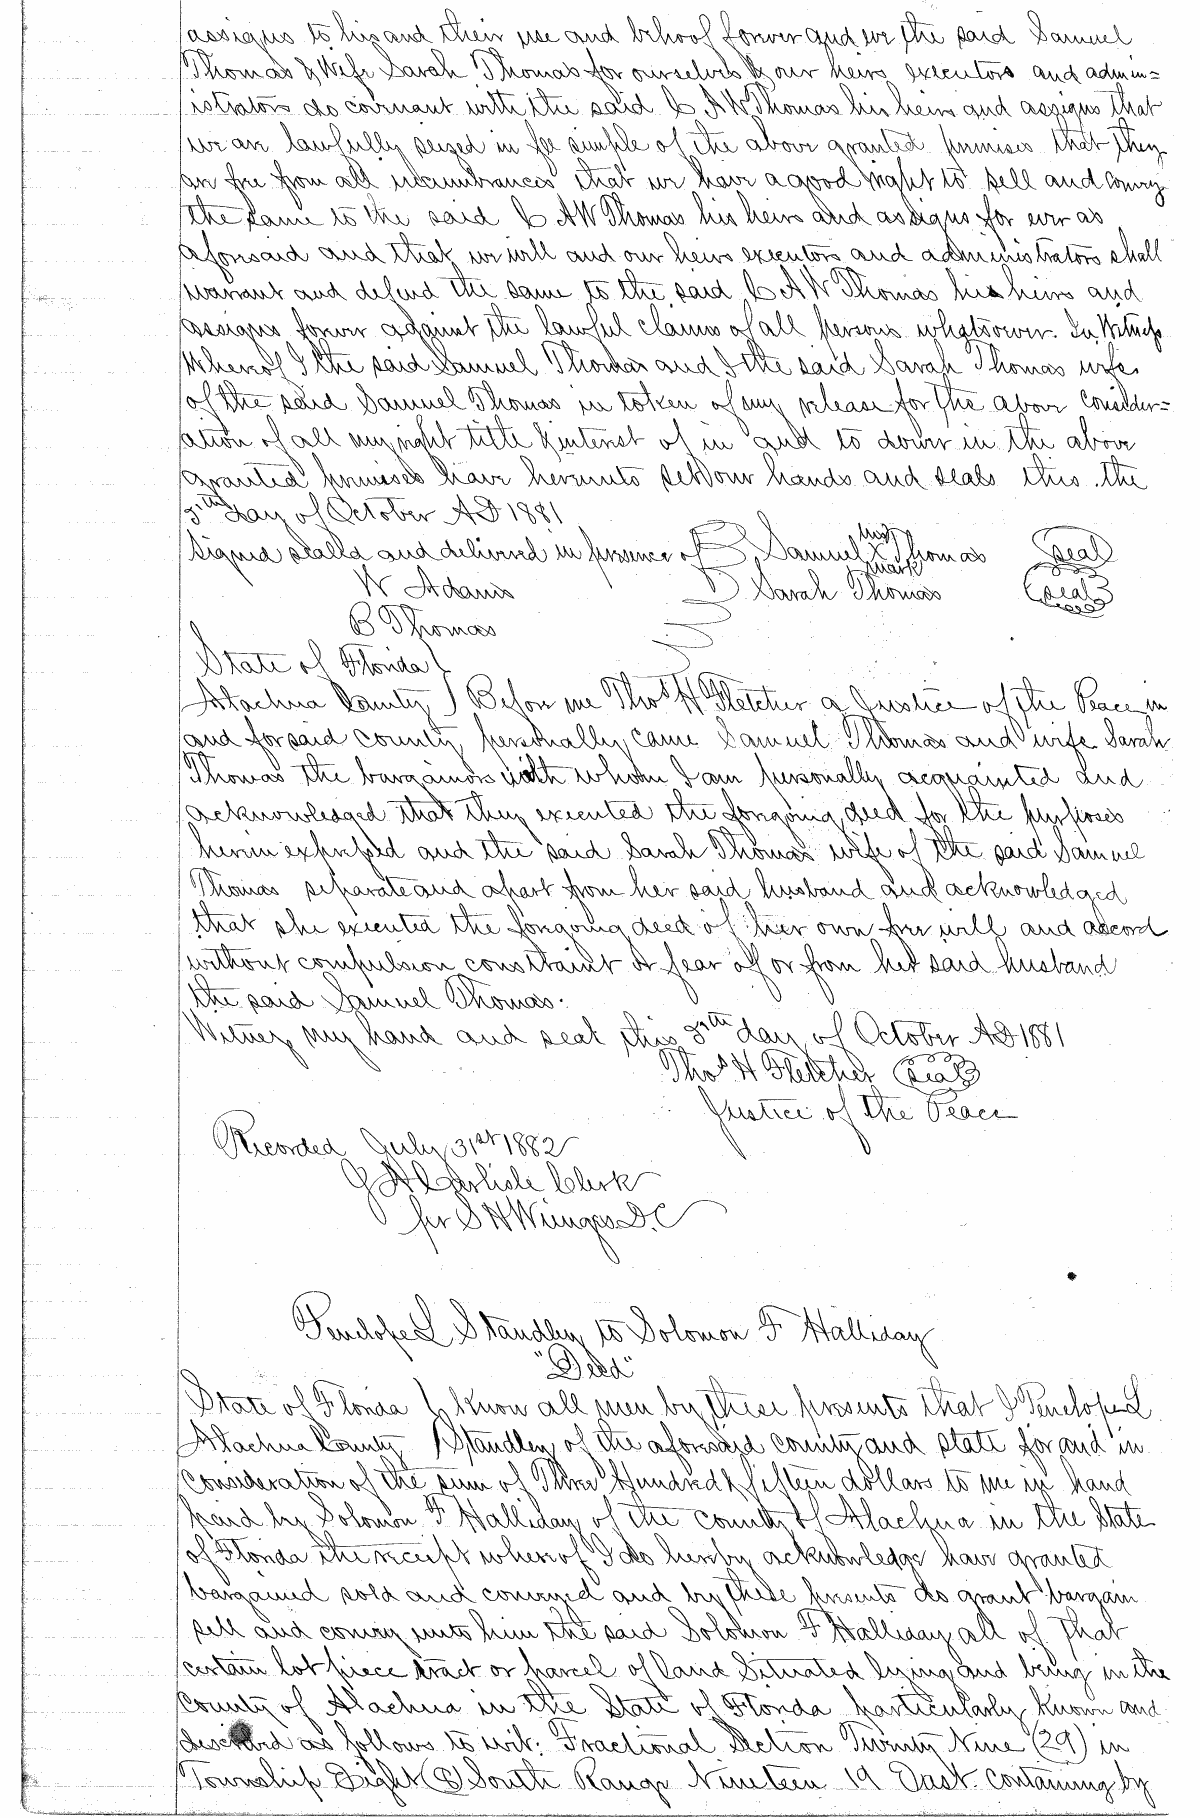 assigns to his and their use and behoof forever and we the said Samuel
Thomas & Wife Sarah Thomas for ourselves & our heirs executors and admin=
istrators do covenant with the said C A W Thomas his heirs and assigns that
we are lawfully seized in fee simple of the above granted premises that they
are free from all incumbrances that we have a good right to sell and convey
the same to the said C A W Thomas his heirs and assigns for ever as
aforesaid and that we will and our heirs executors and administrators shall
warrant and defend the same to the said C A W Thomas his heirs and
assigns forever against the lawful claims of all persons whatsoever. In Witness
Whereof I the said Samuel Thomas and I the said Sarah Thomas wife
of the said Samuel Thomas in token of my release for the above consider=
ation of all my right title & interest of in and to dower in the above
granted premises have hereunto set our hands and seals this the
5th Day of October AD 1881
Signed sealed and delivered in presence of Samuel his X mark Thomas seal
W Adams Sarah Thomas seal
B Thomas
State of Florida
Alachua County Before me Thos H Fletcher a Justice of the Peace in
and for said county personally came Samuel Thomas and wife Sarah
Thomas the bargainors with whom I am personally acquainted and
acknowledged that they executed the foregoing deed for the purposes
herein expressed and the said Sarah Thomas wife of the said Samuel
Thomas separate and apart from her said husband and acknowledged
that she executed the foregoing deed of her own free will and accord
without compulsion constraint or fear of or from her said husband
the said Samuel Thomas.
Witness my hand and seal this 5th day of October AD 1881
Thos H Fletcher seal
Justice of the Peace
Recorded July 31st 1882
J A Carlisle Clerk
per S H Wienges D.C
Penelope L Standley to Solomon F Halliday
"Deed"
State of Florida Know all men by these presents that I Penelope L
Alachua County Standley of the aforesaid county and state for and in
consideration of the sum of Three Hundred & fifteen dollars to me in hand
paid by Solomon F Halliday of the county of Alachua in the State
of Florida the receipt whereof I do hereby acknowledge have granted
bargained sold and conveyed and by these presents do grant bargain
sell and convey unto him the said Solomon F Halliday all of that
certain lot piece tract or parcel of land Situated lying and being in the
County of Alachua in the State of Florida particularly known and
described as follows to wit: Fractional Section Twenty Nine (29) in
Township Eight (8) South Range Nineteen 19 East containing by